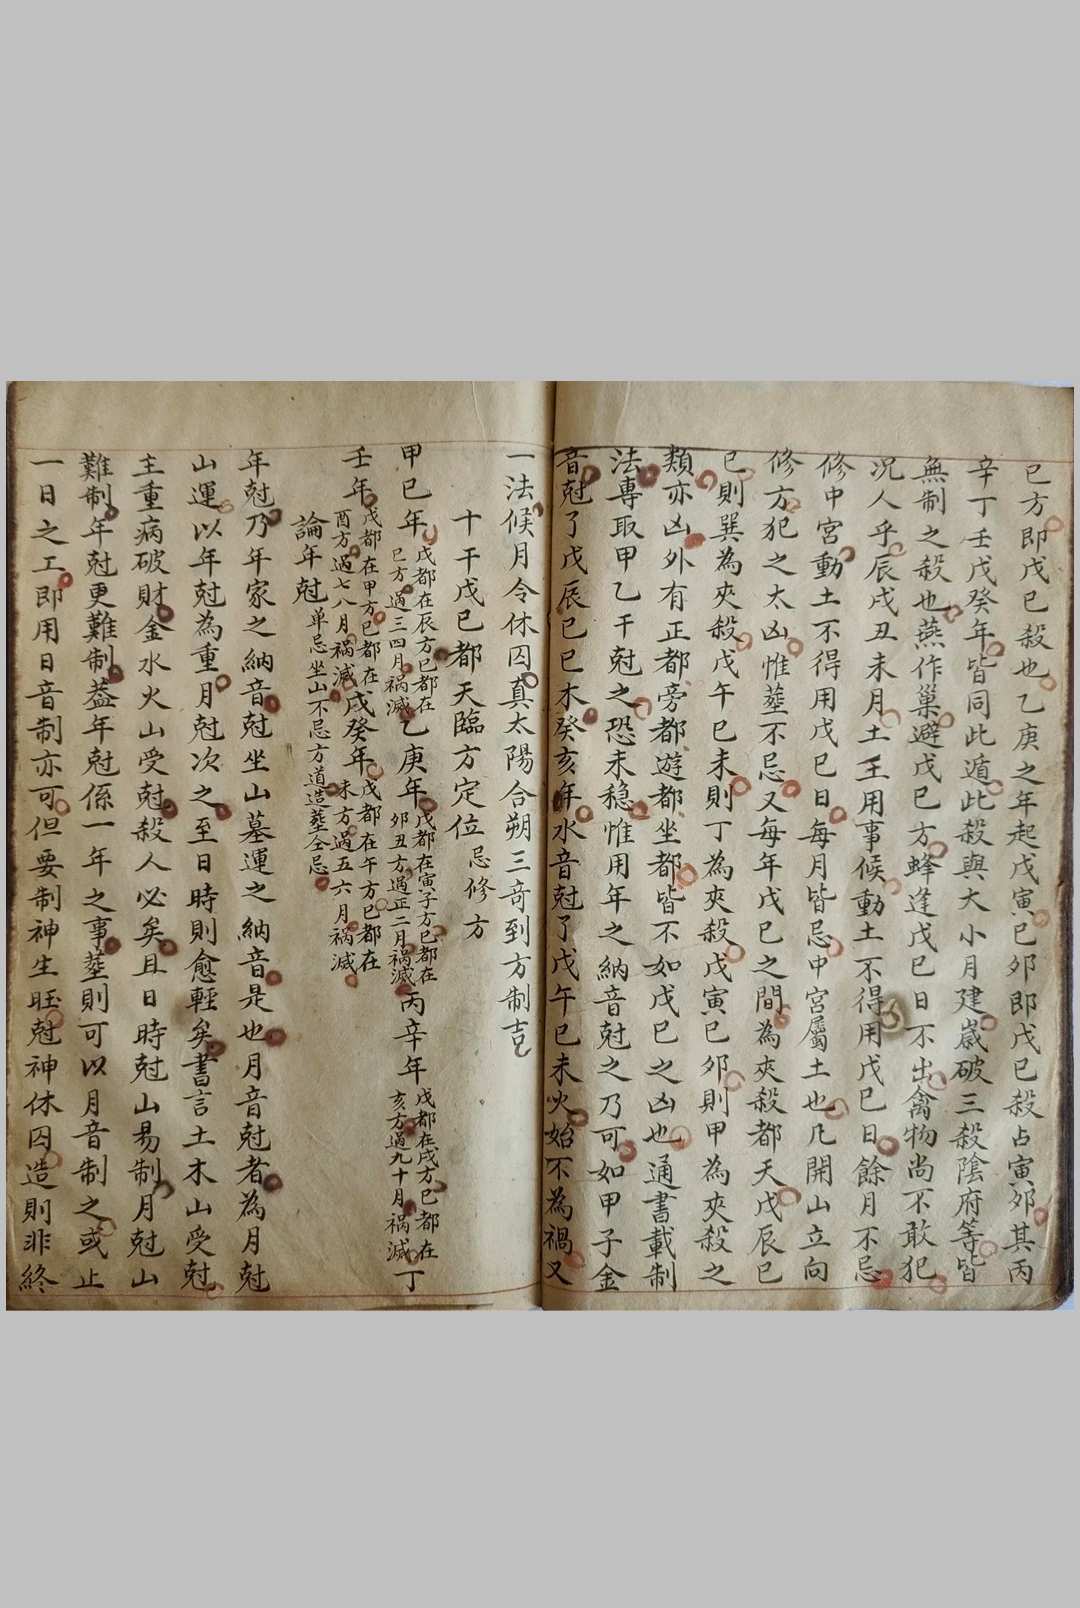 巳方即戊巳殺也乙庚之年起戊寅巳夘即戊巳殺占寅夘其丙
辛丁壬戊癸年皆同此遁此殺與大小月建歲破三殺陰府等皆
無制之殺也燕作巢避戊巳方蜂逢戊巳日不出禽物尚不敢犯
况人乎辰戌丑未月土王用事候動土不得用戊巳日餘月不忌
修中宮動土不得用戊巳日每月皆忌中宮屬土也凡開山立向
修方犯之太凶惟塟不忌又每年戊巳之間為夾殺都天戊辰巳
巳則巽為夾殺戊午巳未則丁為夾殺戊寅巳夘則甲為夾殺之
類亦凶外有正都旁都遊都坐都皆不如戊巳之凶也通書載制
法專取甲乙干尅之恐未穏惟用年之納音尅之乃可如甲子金
音尅了戊辰巳巳木癸亥年水音尅了戊午巳未火始不為禍又
一法候月令休囚真太陽合朔三奇到方制吉
十干戊巳都天臨方定位忌修方
甲巳年戊都在辰方巳都在巳方過三四月禍滅乙庚年戊都在寅子方巳都在卯丑方過正二月禍滅丙辛年戊都在戌方巳都在亥方過九十月禍滅丁
壬年戊都在甲方巳都在酉方過七八月禍滅戊癸年戊都在午方巳都在未方過五六月禍滅
論年尅单忌坐山不忌方道造塟仝忌
年尅乃年家之納音尅坐山墓運之納音是也月音尅者為月尅
山運以年尅為重月尅次之至日時則愈輕矣書言土木山受尅
主重病破財金水火山受尅殺人必矣且日時尅山易制月尅山
難制年尅更難制葢年尅係一年之事塟則可以月音制之或止
一日之工即用日音制亦可但要制神生旺尅神休囚造則非終